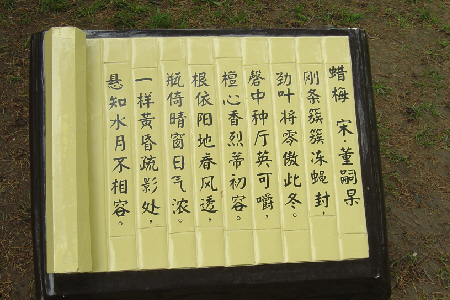 蜡梅 宋·董嗣杲
刚条簇簇冻蝇封，
劲叶将零傲此冬。
磬中种厅英可嚼，
檀心香烈蒂初容。
根依阳地春风透，
瓶倚晴窗日气浓。
一样黃昏疏影处，
悬知水月不相容。